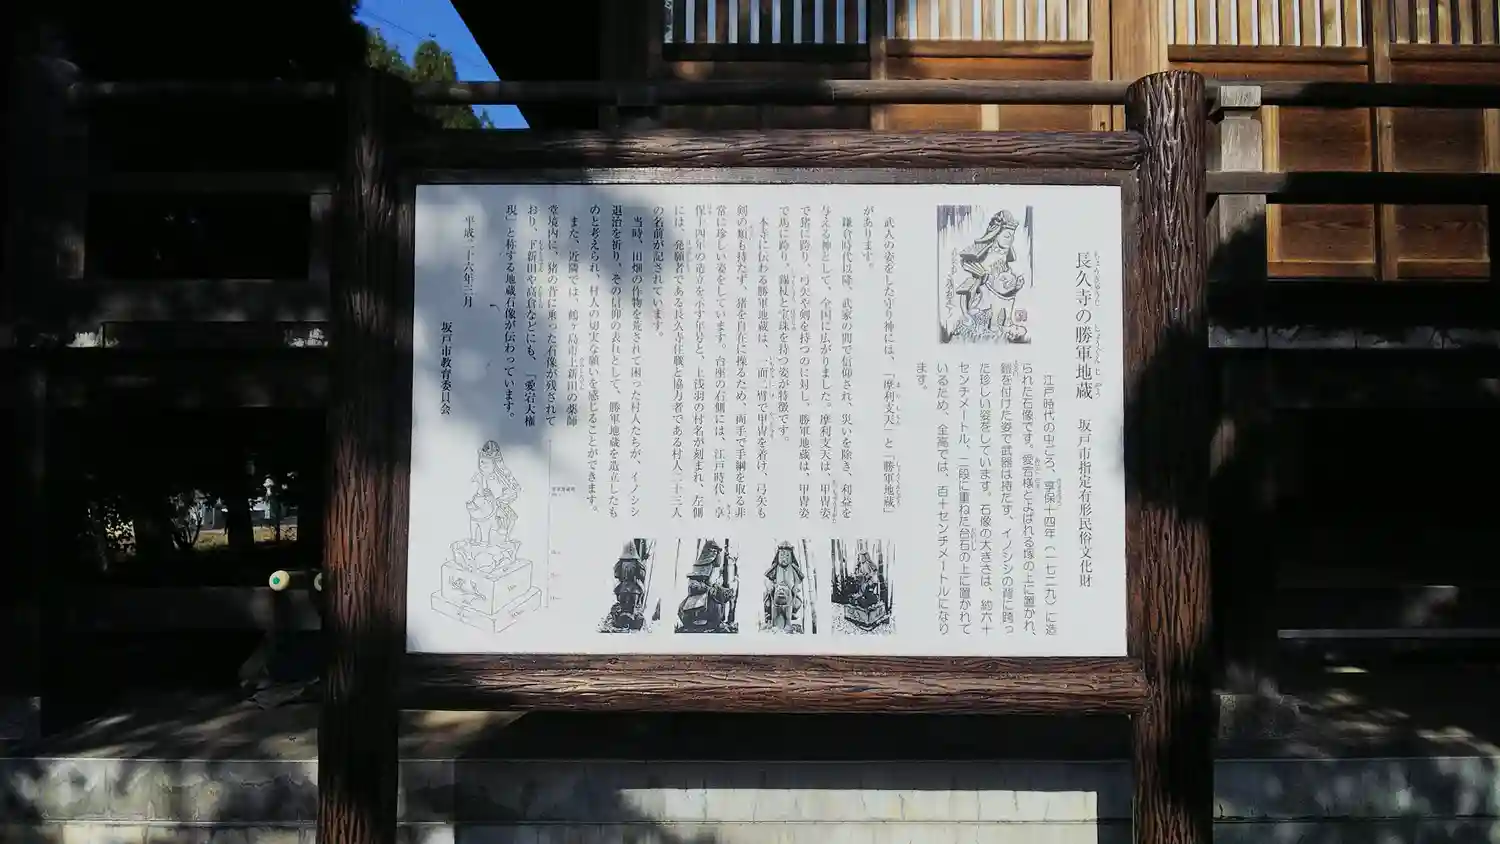 長久寺の勝軍地蔵　坂戸市指定有形民俗文化財
江戸時代の中ごろ、享保十四年（一七二九）に造
られた石像です。愛宕様とよばれる塚の上に置かれ、
鎧を付けた姿で武器は持たず、イノシシの背に跨っ
た珍しい姿をしています。石像の大きさは、約六十
センチメートル、二段に重ねた台石の上に置かれて
いるため、全高では、百十センチメートルになり
ます。
武人の姿をした守り神には、「摩利支天」と「勝軍地蔵」
があります。
鎌倉時代以降、武家の間で信仰され、災いを除き、利益を
与える神として、全国に広がりました。摩利支天は、甲冑姿
で猪に跨り、弓矢や剣を持つのに対し、勝軍地蔵は、甲冑姿
で馬に跨り、錫杖と宝珠を持つ姿が特徴です。
本寺に伝わる勝軍地蔵は、一面二臂で甲冑を着け、弓矢も
剣の類も持たず、猪を自在に操るため、両手で手綱を取る非
常に珍しい姿をしています。台座の右側には、江戸時代・享
保十四年の造立を示す年号と、上浅羽の村名が刻まれ、左側
には、発願者である長久寺住職と協力者である村人二十三人
の名前が記されています。
当時、田畑の作物を荒されて困った村人たちが、イノシシ
退治を祈り、その信仰の表れとして、勝軍地蔵を造立したも
のと考えられ、村人の切実な願いを感じることができます。
また、近隣では、鶴ヶ島市上新田の薬師
堂境内に、猪の背に乗った石像が残されて
おり、下新田や高倉などにも、「愛宕大権
現」と称する地蔵石像が伝わっています。
平成二十六年三月
坂戸市教育委員会